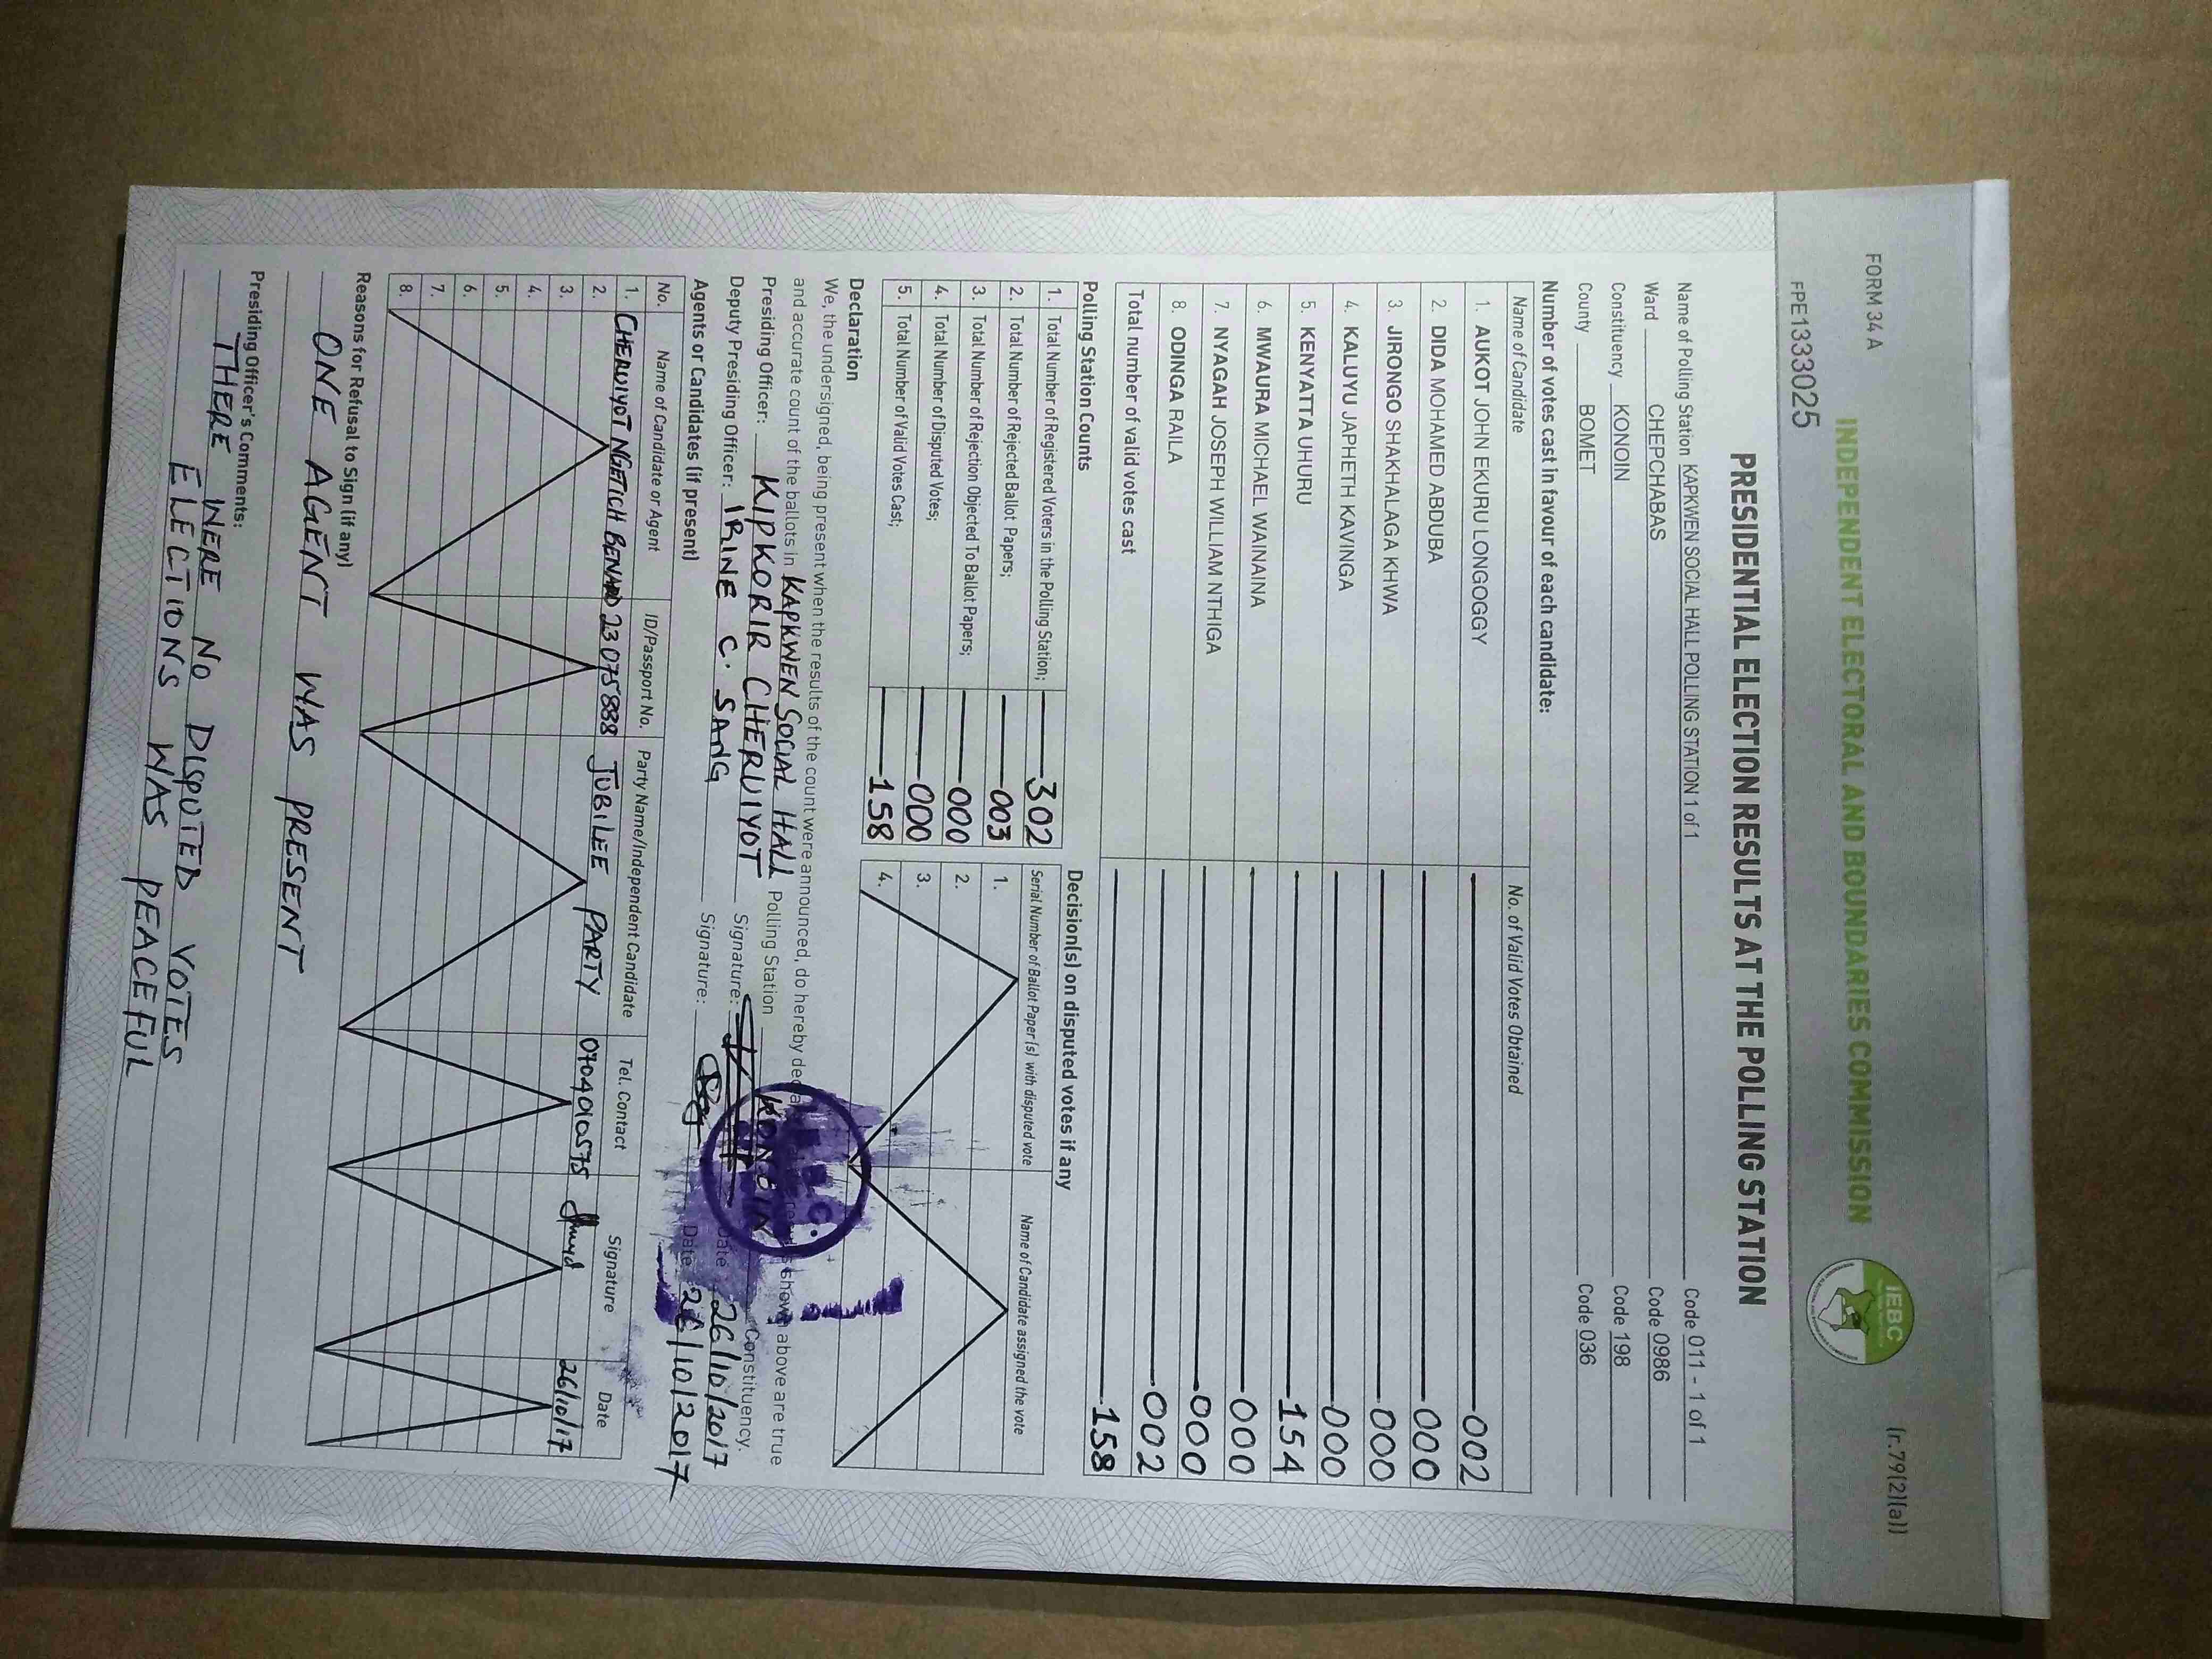 FORM 34 A
(r.79(2)(a))
INDEPENDENT ELECTORAL AND BOUNDARIES COMMISSION
IEBC
FPE1333025
PRESIDENTIAL ELECTION RESULTS AT THE POLLING STATION
Name of Polling Station KAPKWEN SOCIAL HALL POLLING STATION 1 of 1 Code 011 - 1 of 1
Ward CHEPCHABAS Code 0986
Constituency KONOIN Code 198
County BOMET Code 036
Number of votes cast in favour of each candidate:
Name of Candidate No. of Valid Votes Obtained
1. AUKOT JOHN EKURU LONGOGGY 002
2. DIDA MOHAMED ABDUBA 000
3. JIRONGO SHAKHALAGA KHWA 000
4. KALUYU JAPHETH KAVINGA 000
5. KENYATTA UHURU 154
6. MWAURA MICHAEL WAINAINA 000
7. NYAGAH JOSEPH WILLIAM NTHIGA 000
8. ODINGA RAILA 002
Total number of valid votes cast 158
Polling Station Counts
1. Total Number of Registered Voters in the Polling Station; 302
2. Total Number of Rejected Ballot Papers; 003
3. Total Number of Rejection Objected To Ballot Papers; 000
4. Total Number of Disputed Votes; 000
5. Total Number of Valid Votes Cast; 158
Decision(s) on disputed votes if any
Serial Number of Ballot Paper (s) with disputed vote Name of Candidate assigned the vote
1.
2.
3.
4.
Declaration
We, the undersigned, being present when the results of the count were announced, do hereby shown above are true
and accurate count of the ballots in KAPKWEN SOCIAL HALL Polling Station KONOIN Constituency.
Presiding Officer: KIPKORIR CHERUIYOT Signature: Date 26/10/2017
Deputy Presiding Officer: IRINE C. SANG Signature: Date 26/10/2017
Agents or Candidates (if present)
No. Name of Candidate or Agent ID/Passport No. Party Name/Independent Candidate Tel. Contact Signature Date
1. CHERUIYOT NGETICH BENARD 23075888 JUBILEE PARTY 0704010575 26/10/17
2.
3.
4.
5.
6.
7.
8.
Reasons for Refusal to Sign (if any)
ONE AGENT WAS PRESENT
Presiding Officer's Comments:
THERE WERE NO DISPUTED VOTES
ELECTIONS WAS PEACEFUL